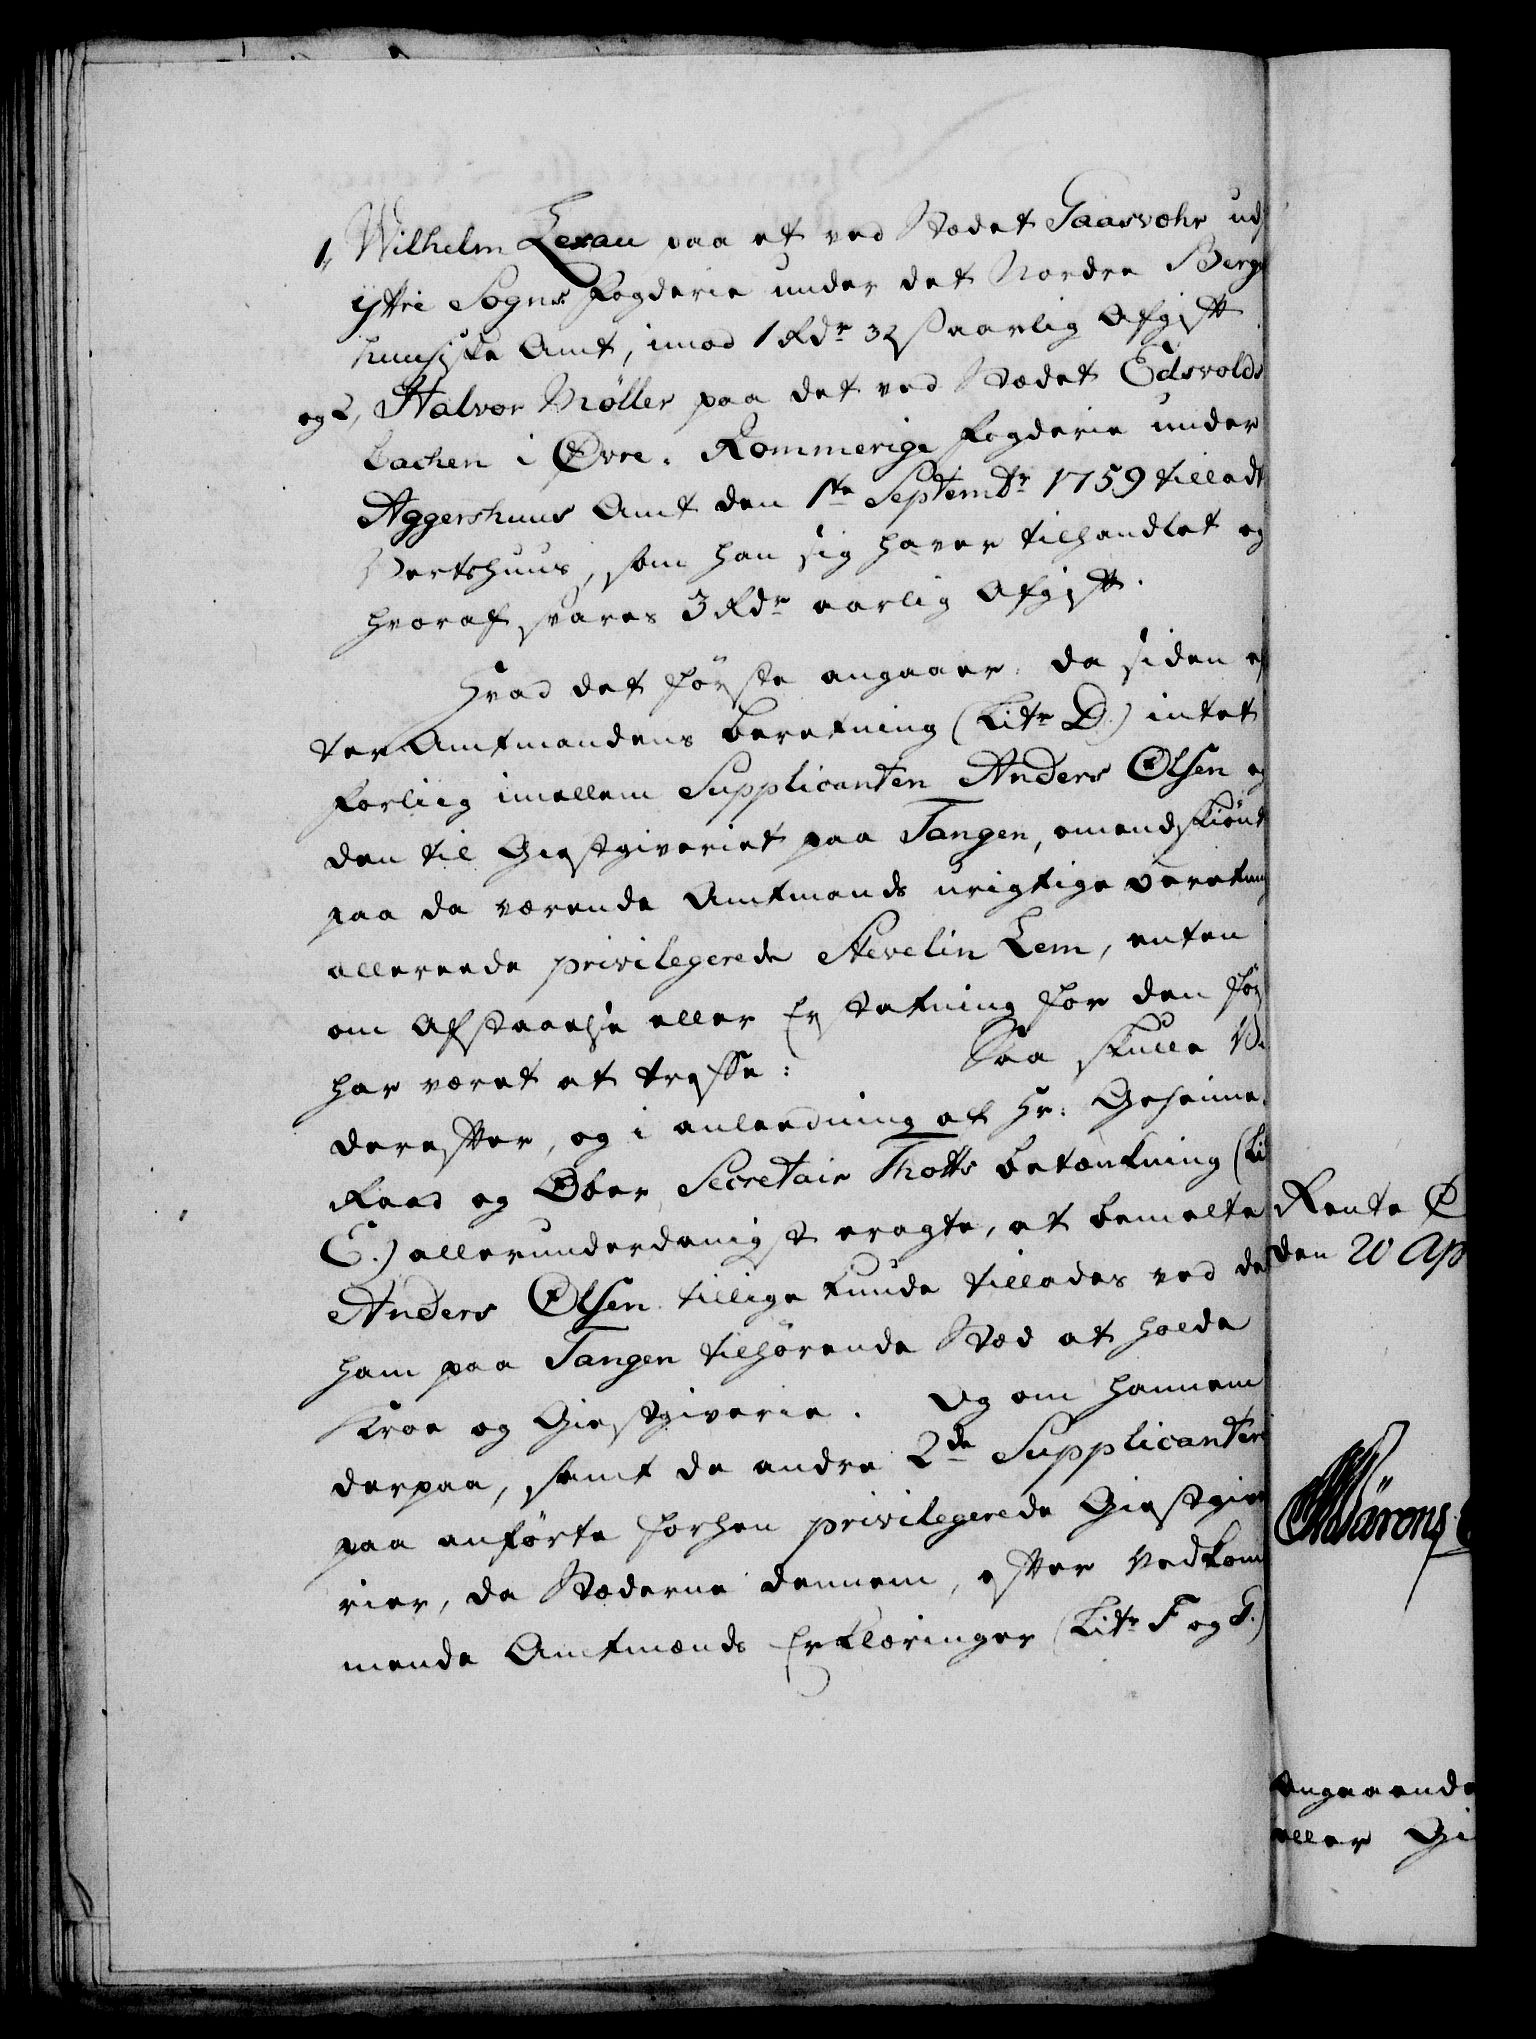 1, Wilhelm Lexau paa et ved Stædet Gaasvæhr udj
yttre Sogns Fogderie under det Nordre Berge
huusiske Amt, imod 1 Rdr 32 s aarlig Afgift
og 2, Halvor Møller paa det ved Stædet Edsvolds
bachen i Øvre Rommerige Fogderie under
Aggershuus Amt den 1ste Septembr 1759 tilladte
Vertshuus, som han sig haver tilhandlet og
hvoraf svares 3 Rdr aarlig Afgift.
Hvad det første angaaer, da siden ef
ter Amtmandens Beretning (Litr D.) intet
Forliig imellem Supplicanten Anders Olsen og
den til Giestgiveriet paa Tangen, omendskiønt
paa da værende Amtmands urigtige Beretning
allereede privilegerede Stevelin Lem, enten
om Afstaaelse eller Erstatning for den før
har været at træffe: Saa skulle Vi
derefter, og i anleedning af Hr. Geheime
Raad og Ober Secretair Thotts betænkning (Lit
E.) allerunderdanigst eragte, at bemelte
Anders Olsen tillige kunde tillades ved de
ham paa Tangen tilhørende Stæd at holde
Kroe og Giestgiverie. Og om hannem
derpaa, samt de andre 2de Supplicantere
paa anførte forhen privilegerede Giestgive
rier, da Stæderne dennem, efter Vedkom
mende Amtmænds Erklæringer (Litr F og G.)
Rente C
den 20 Ap
Angaaende
eller Gi